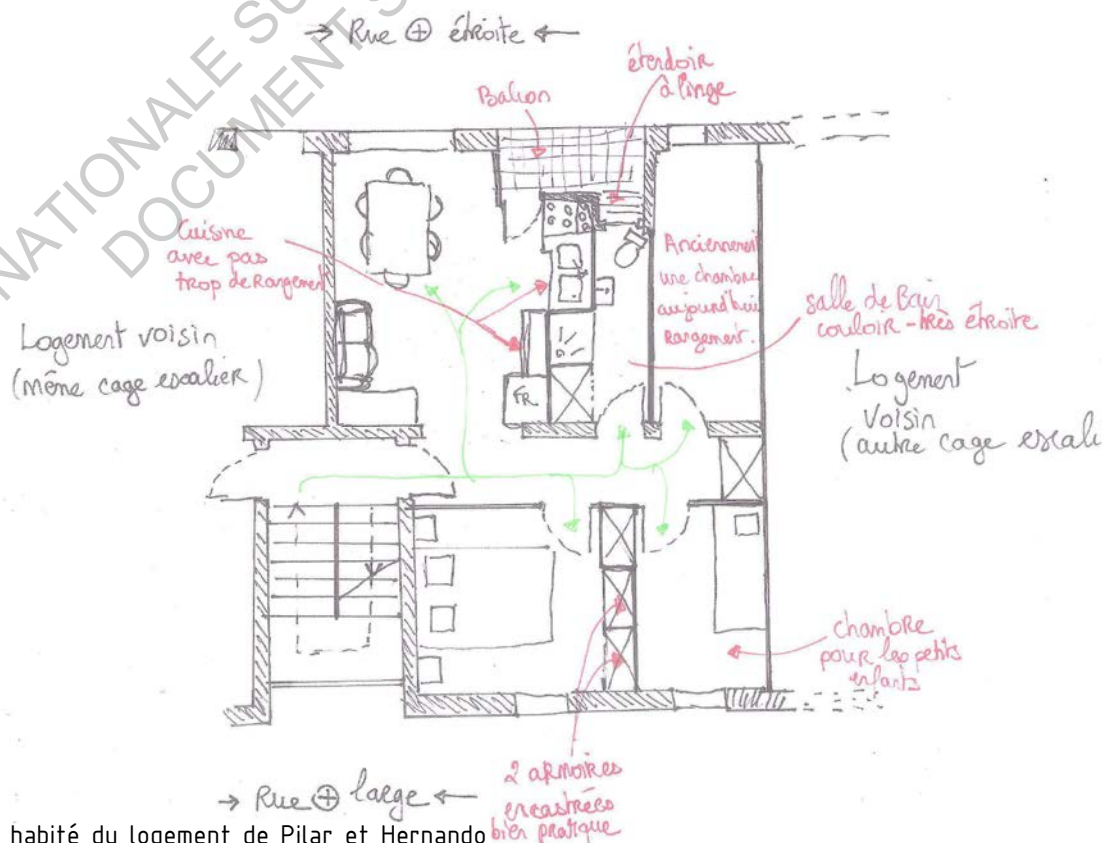 → Rue ⊕ étroite ←
NATIONALE SU
DOCUMENT S
Balcon
étendoir
à linge
Cuisine
avec pas
trop de Rangement
Anciennement
une chambre
aujourd'hui
Rangement.
salle de Bain
couloir - très étroite
Logement voisin
(même cage escalier)
FR
Logement
Voisin
(autre cage escali
chambre
pour les petits
enfants
2 armoires
encastrées
bien pratique
→ Rue ⊕ large ←
habité du logement de Pilar et Hernando